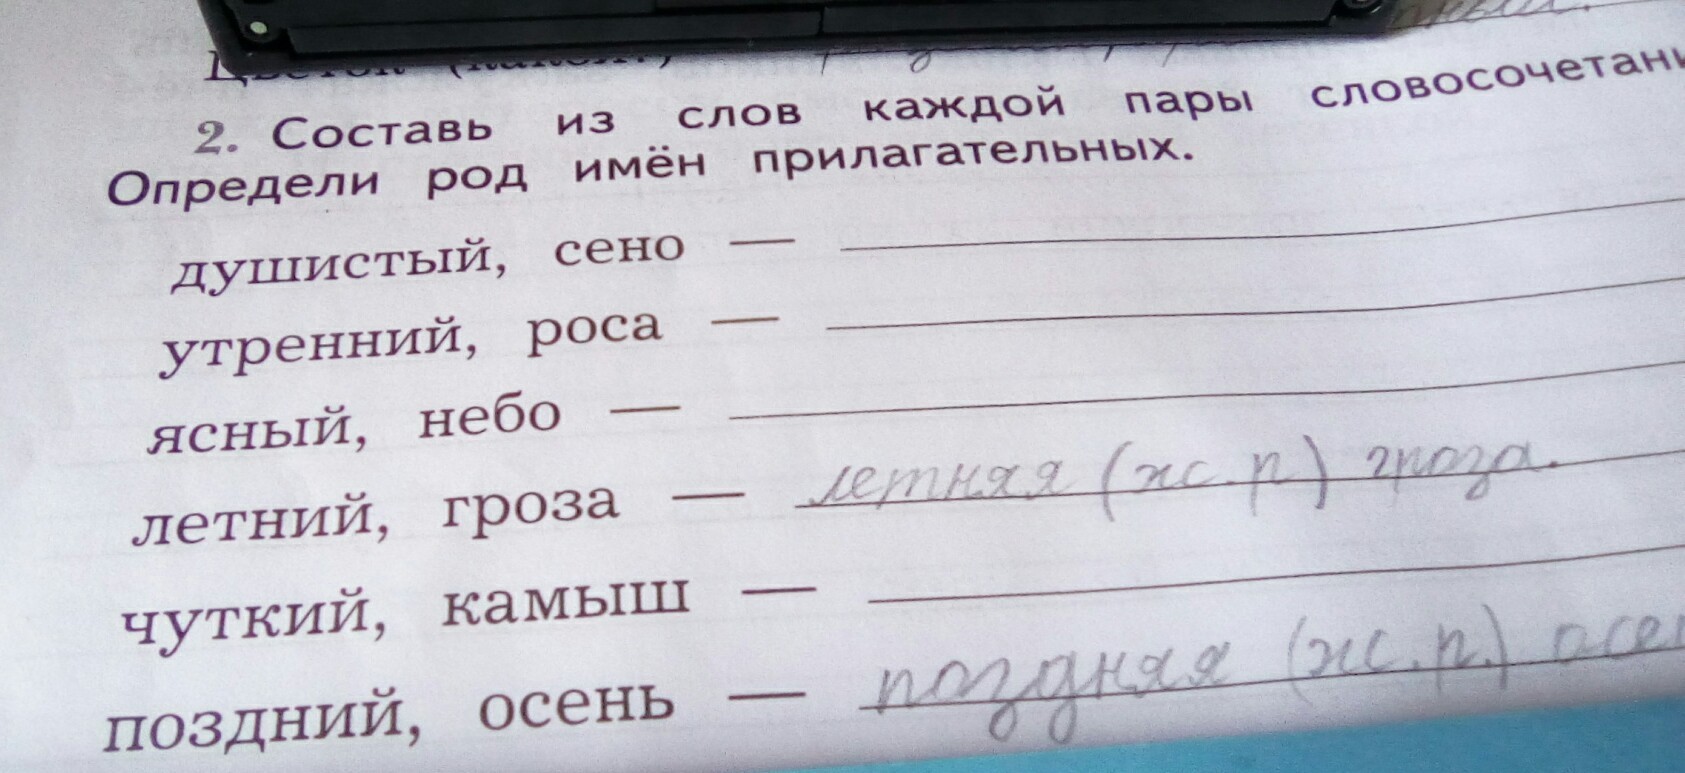 2. Составь из слов каждой пары
Определи род имён прилагательных.
душистый, сено —
утренний, роса —
ясный, небо —
летний, гроза — летняя (ж.р) гроза.
чуткий, камыш —
поздний, осень — поздняя (ж.р.)